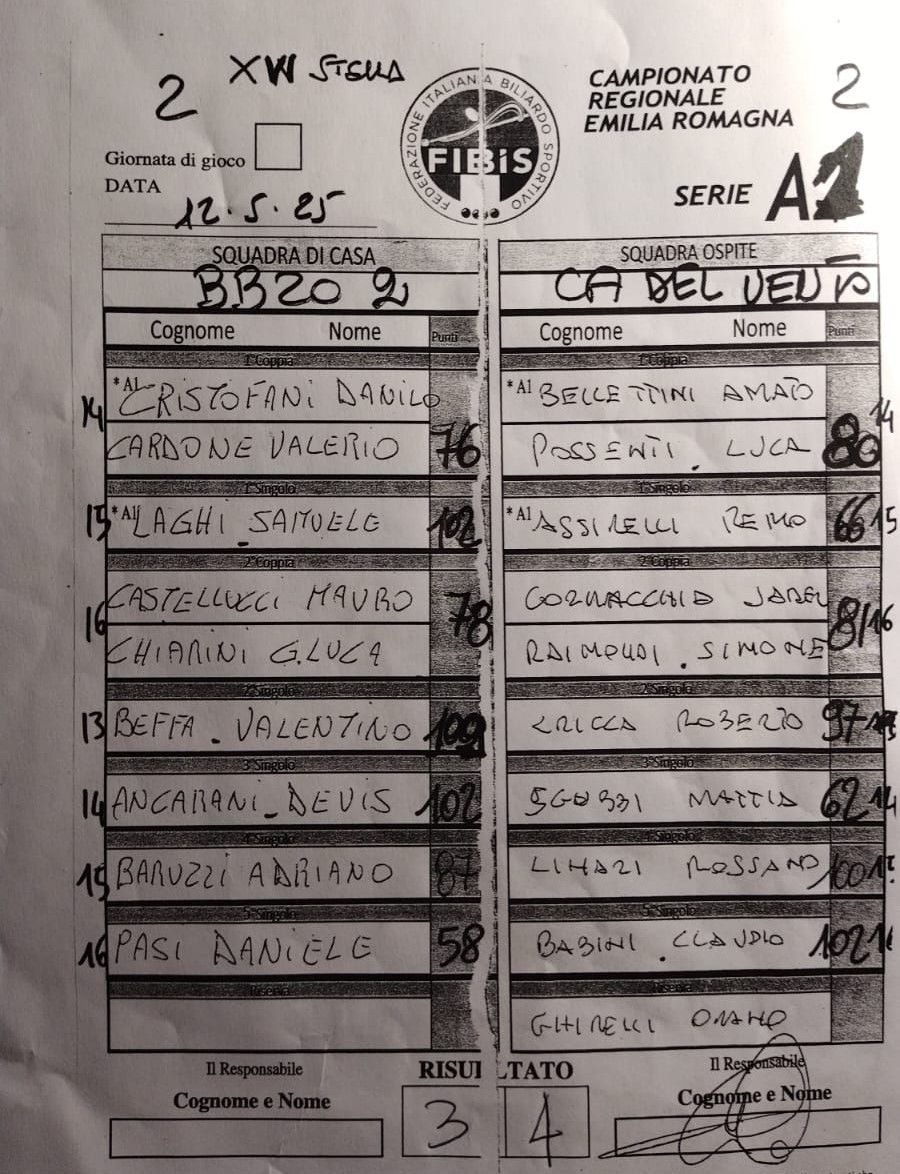 2 XVI STELLA
CAMPIONATO
REGIONALE
EMILIA ROMAGNA
2
FEDERAZIONE ITALIANA BILIARDO SPORTIVO
FIBiS
Giornata di gioco
DATA
12.5.25
SERIE A
SQUADRA DI CASA
SQUADRA OSPITE
BBZO 2
CA DEL VENTO
Cognome Nome Punti
Cognome Nome Punti
1°Coppia
1°Coppia
14 *A1 CRISTOFANI DANILO
*A1 BELLETTINI AMATO 14
CARDONE VALERIO 76
POSSENTI. LUCA 80
1°Singolo
1°Singolo
15 *A1 LAGHI SAMUELE 102
*A1 ASSIRELLI REMO 66 15
2°Coppia
2°Coppia
16 CASTELLUCCI MAURO 78
CORNACCHIA JADER 81 16
CHIARINI G.LUCA
RAIMONDI . SIMONE
2°Singolo
2°Singolo
13 BEFFA . VALENTINO 109
CRICCA ROBERTO 97
3°Singolo
3°Singolo
14 ANCARANI_DEVIS 102
SGUBBI MATTIA 62 14
4°Singolo
4°Singolo
15 BARUZZI ADRIANO 87
LINARI ROSSANO 100 15
5°Singolo
5°Singolo
16 PASI DANIELE 58
BABINI . CLAUDIO 102 16
Riserva
Riserva
GHIRELLI
Il Responsabile
RISULTATO
Il Responsabile
Cognome e Nome
Cognome e Nome
3 4